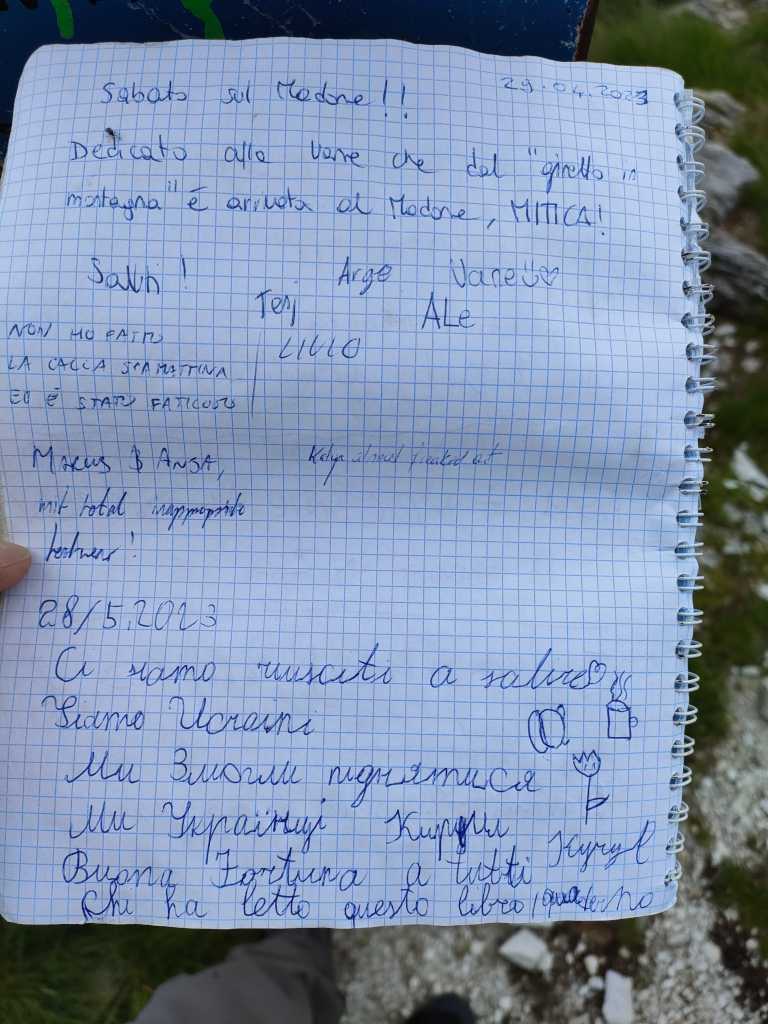 29.04.2023
Sabato sul Madone!!
Dedicato alla Vane che dal "giretto in
montagna" è arivata al Madone, MITICA!
Arge Vane
Tery ALe
LILLO
NON HO FATTO
LA CACCA STAMATTINA
ED È STATO FATICOSO
& ANJA,
mit total inappropriate
28/5.2023
Ci siamo riusciti a salire
Siamo Ucraini
Ми Змогли піднятися
Ми Українці Кирил
Buona Fortuna a tutti
Chi ha letto questo libro, quaderno